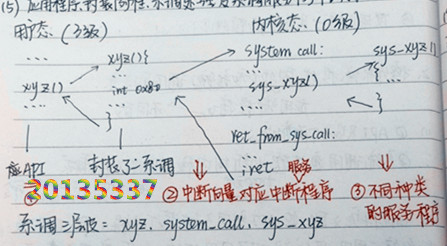 (5) 应用程序、封装例程、系调
用户态 (3级)
内核态 (0级)
....
xyz(){
system_call:
sys_xyz()
...
...
{ ...
xyz()
int 0x80
sys_xyz()
...
...
}
...
}
ret_from_sys_call:
...
API
封装了系调
iret
服务
20135337
② 中断向量对应中断程序
③ 不同种类
的服务程序
系调三层皮: xyz、system_call、sys_xyz